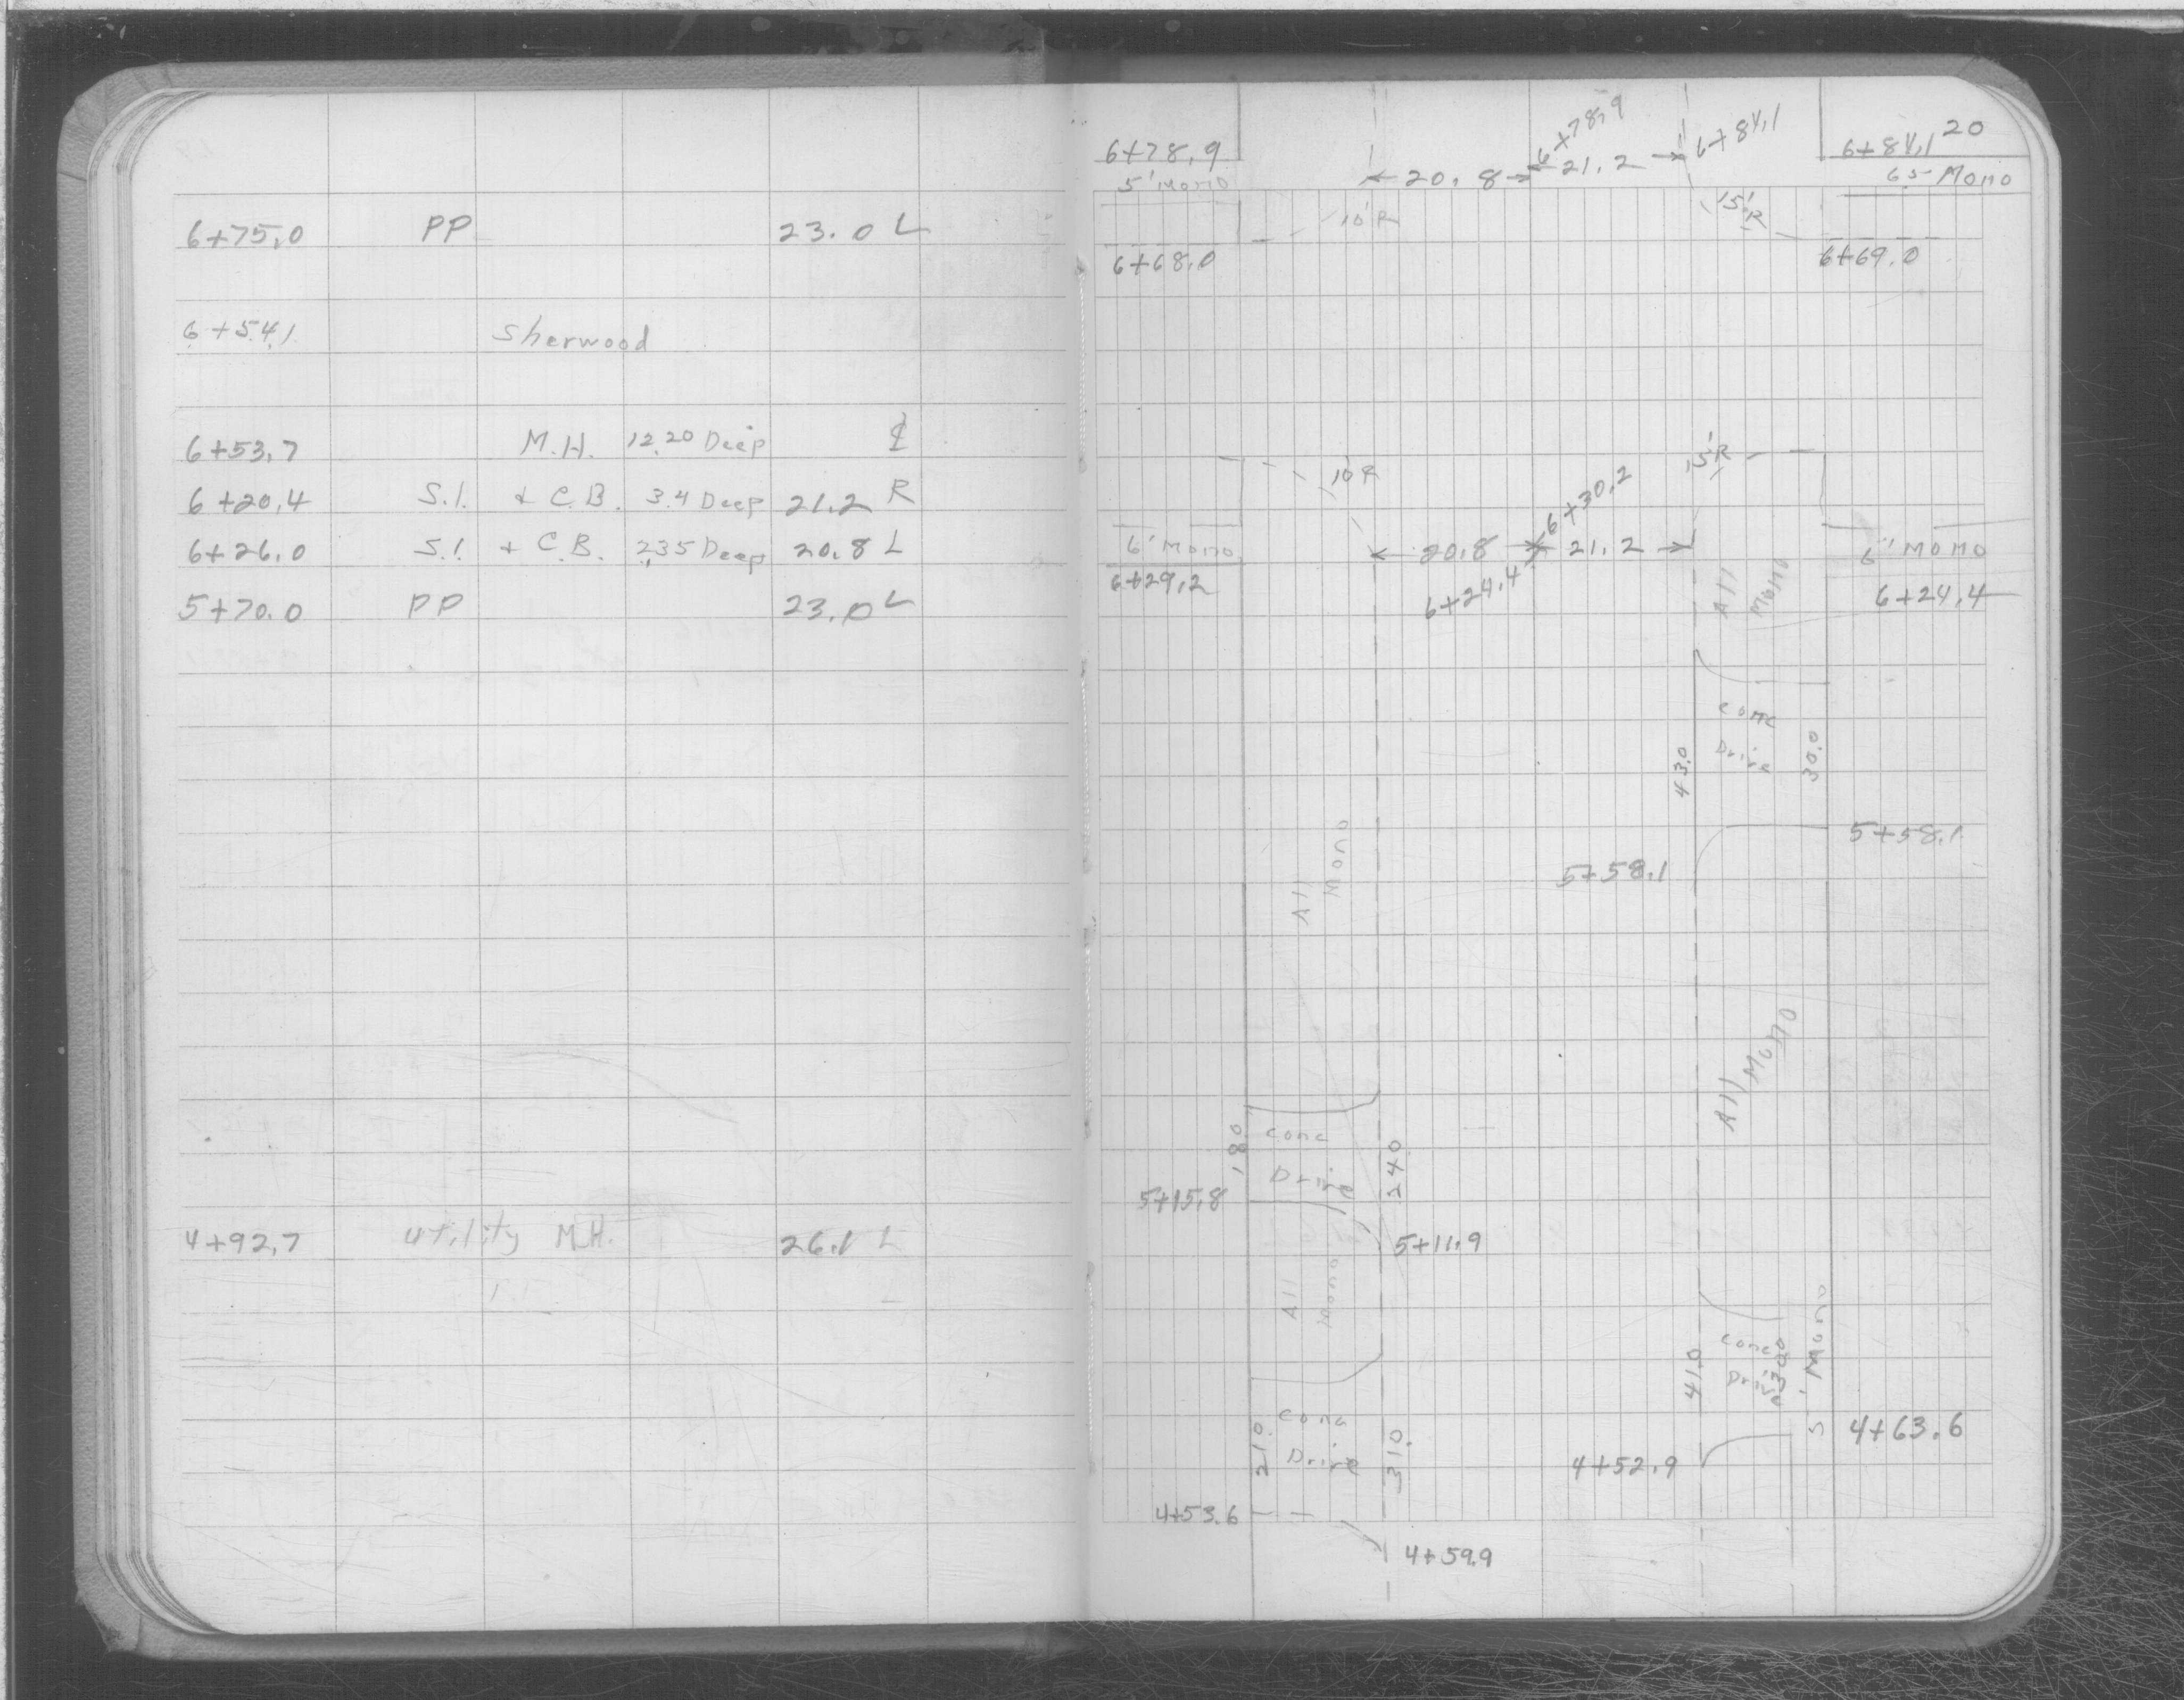 6+75.0 PP 23.0 L
6+54.1 Sherwood
6+53.7 M.H. 12.20 Deep ℄
6+20.4 S.I. + C.B. 3.4 Deep 21.2 R
6+26.0 S.I. + C.B. 2.35 Deep 20.8 L
5+70.0 PP 23.0 L
4+92.7 utility M.H. 26.1 L
20
6+78.9 6+78.9 6+84.1 6+84.1
5' Mono 20.8 21.2 Mono
10'R 15'R
6+68.0 6+69.0
10'R 15'R
6+30.2
6' Mono 20.8 21.2 6' Mono
6+29.2 6+24.4 6+24.4
All Mono
Conc
Drive
43.0 30.0
5+58.1
5+58.1
All Mono
All Mono
18.0 Conc
Drive 24.0
5+15.8
5+11.9
All Mono
Conc
Drive
41.0 5' Mono
21.0 Conc
Drive 31.0
4+63.6
4+52.9
4+53.6
4+59.9